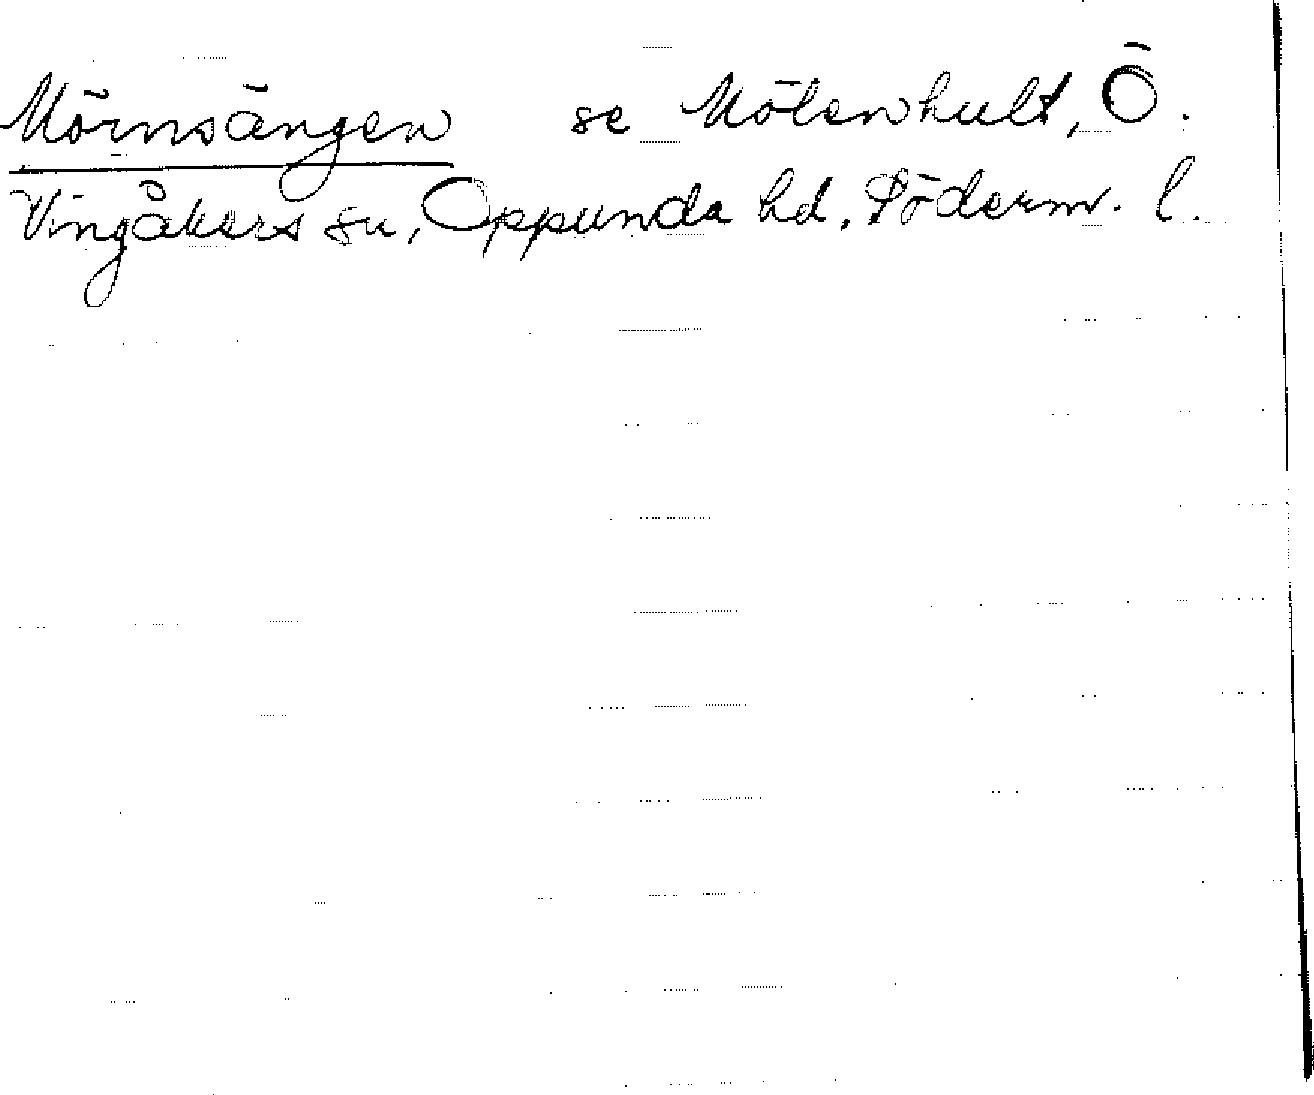 Mörnsängen se Mötenhult, Ö.
Vingåkers sn, Oppunda hd, Söderm. l.